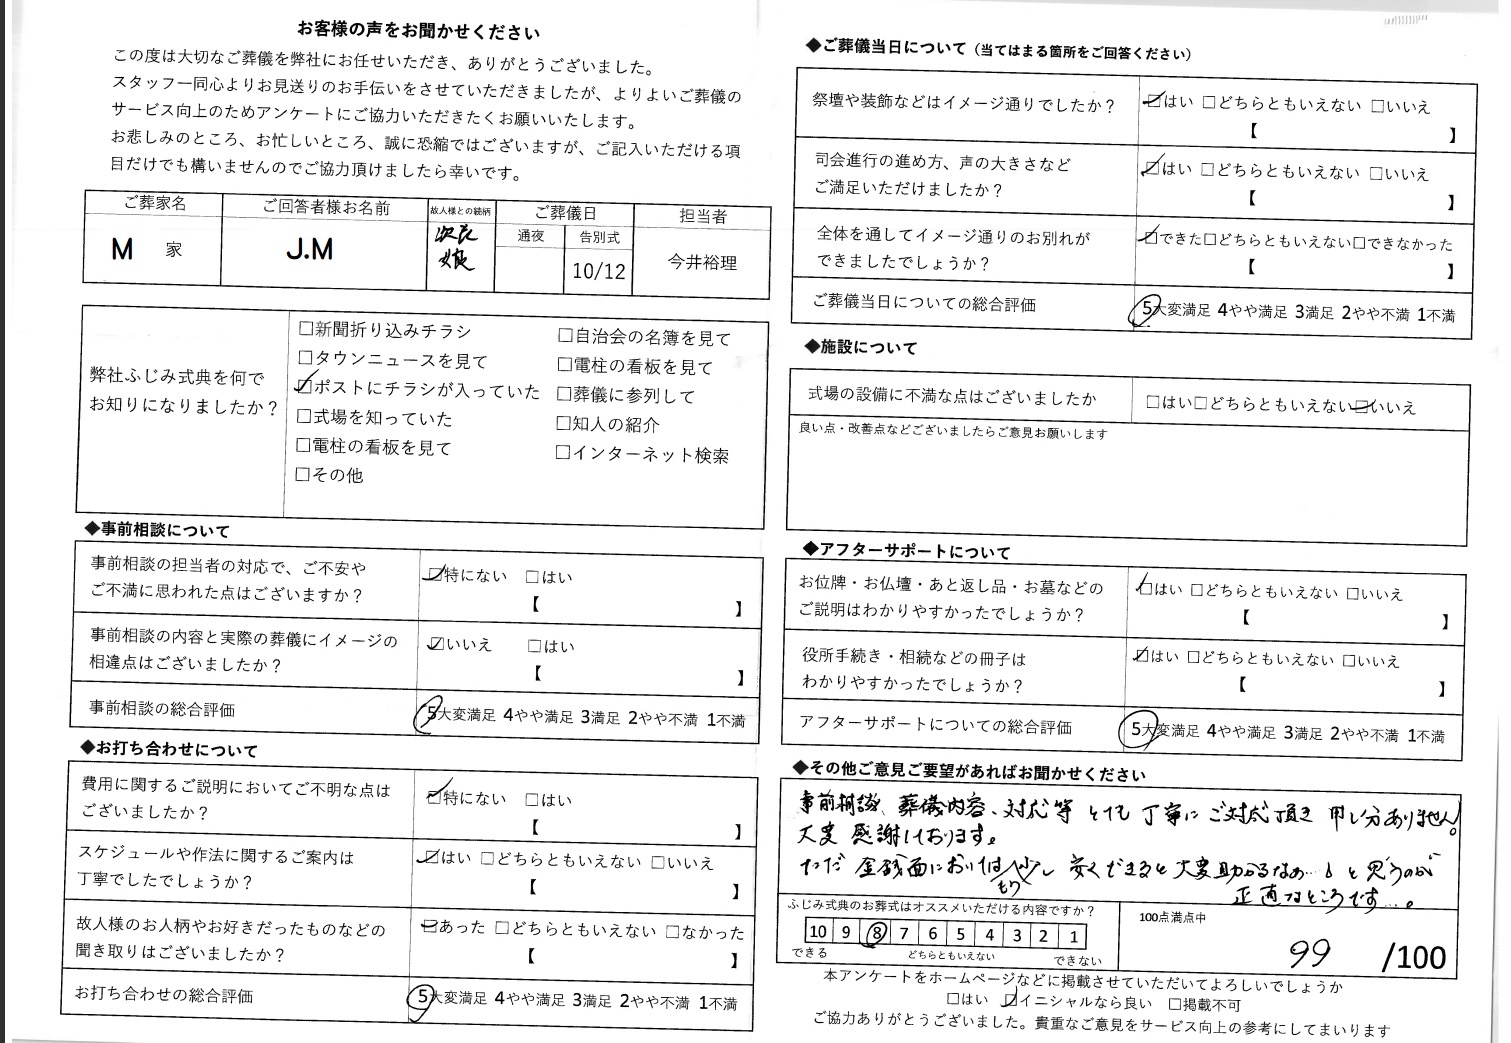 お客様の声をお聞かせください
この度は大切なご葬儀を弊社にお任せいただき、ありがとうございました。
スタッフ一同心よりお見送りのお手伝いをさせていただきましたが、よりよいご葬儀の
サービス向上のためアンケートにご協力いただきたくお願いいたします。
お悲しみのところ、お忙しいところ、誠に恐縮ではございますが、ご記入いただける項
目だけでも構いませんのでご協力頂けましたら幸いです。
ご葬家名 ご回答者様お名前 故人様との続柄 ご葬儀日 担当者
通夜 告別式
M 家 J.M 次良 娘 10/12 今井裕理
弊社ふじみ式典を何で
お知りになりましたか？
□新聞折り込みチラシ
□タウンニュースを見て
☑ポストにチラシが入っていた
□式場を知っていた
□電柱の看板を見て
□その他
□自治会の名簿を見て
□電柱の看板を見て
□葬儀に参列して
□知人の紹介
□インターネット検索
◆事前相談について
事前相談の担当者の対応で、ご不安や
ご不満に思われた点はございますか？
☑特にない □はい
【 】
事前相談の内容と実際の葬儀にイメージの
相違点はございましたか？
☑いいえ □はい
【 】
事前相談の総合評価 5大変満足 4やや満足 3満足 2やや不満 1不満
◆お打ち合わせについて
費用に関するご説明においてご不明な点は
ございましたか？
☑特にない □はい
【 】
スケジュールや作法に関するご案内は
丁寧でしたでしょうか？
☑はい □どちらともいえない □いいえ
【 】
故人様のお人柄やお好きだったものなどの
聞き取りはございましたか？
☑あった □どちらともいえない □なかった
【 】
お打ち合わせの総合評価 5大変満足 4やや満足 3満足 2やや不満 1不満
◆ご葬儀当日について（当てはまる箇所をご回答ください）
祭壇や装飾などはイメージ通りでしたか？ ☑はい □どちらともいえない □いいえ
【 】
司会進行の進め方、声の大きさなど
ご満足いただけましたか？
☑はい □どちらともいえない □いいえ
【 】
全体を通してイメージ通りのお別れが
できましたでしょうか？
☑できた□どちらともいえない□できなかった
【 】
ご葬儀当日についての総合評価 5大変満足 4やや満足 3満足 2やや不満 1不満
◆施設について
式場の設備に不満な点はございましたか □はい□どちらともいえない☑いいえ
良い点・改善点などございましたらご意見お願いします
◆アフターサポートについて
お位牌・お仏壇・あと返し品・お墓などの
ご説明はわかりやすかったでしょうか？
☑はい □どちらともいえない □いいえ
【 】
役所手続き・相続などの冊子は
わかりやすかったでしょうか？
☑はい □どちらともいえない □いいえ
【 】
アフターサポートについての総合評価 5大変満足 4やや満足 3満足 2やや不満 1不満
◆その他ご意見ご要望があればお聞かせください
事前相談、葬儀内容、対応等 とても 丁寧に ご対応 頂き 申し分ありません。
大変 感謝しております。
ただ 金銭面においては もう 少し 安くできると 大変助かるなあ…と 思うのが
正直なところです…。
ふじみ式典のお葬式はオススメいただける内容ですか？
10 9 8 7 6 5 4 3 2 1
できる どちらともいえない できない
100点満点中
99 /100
本アンケートをホームページなどに掲載させていただいてよろしいでしょうか
□はい ☑イニシャルなら良い □掲載不可
ご協力ありがとうございました。貴重なご意見をサービス向上の参考にしてまいります